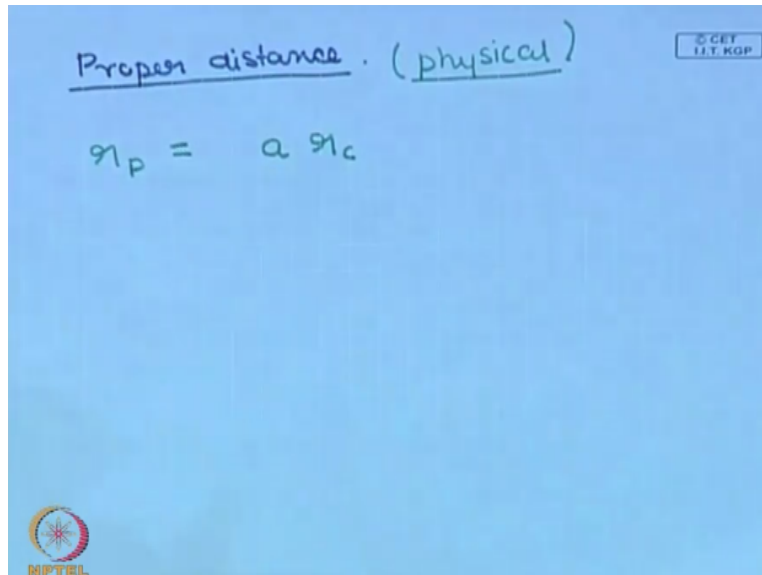 Proper distance. (physical)
© CET
I.I.T. KGP
r_p = a r_c
NPTEL